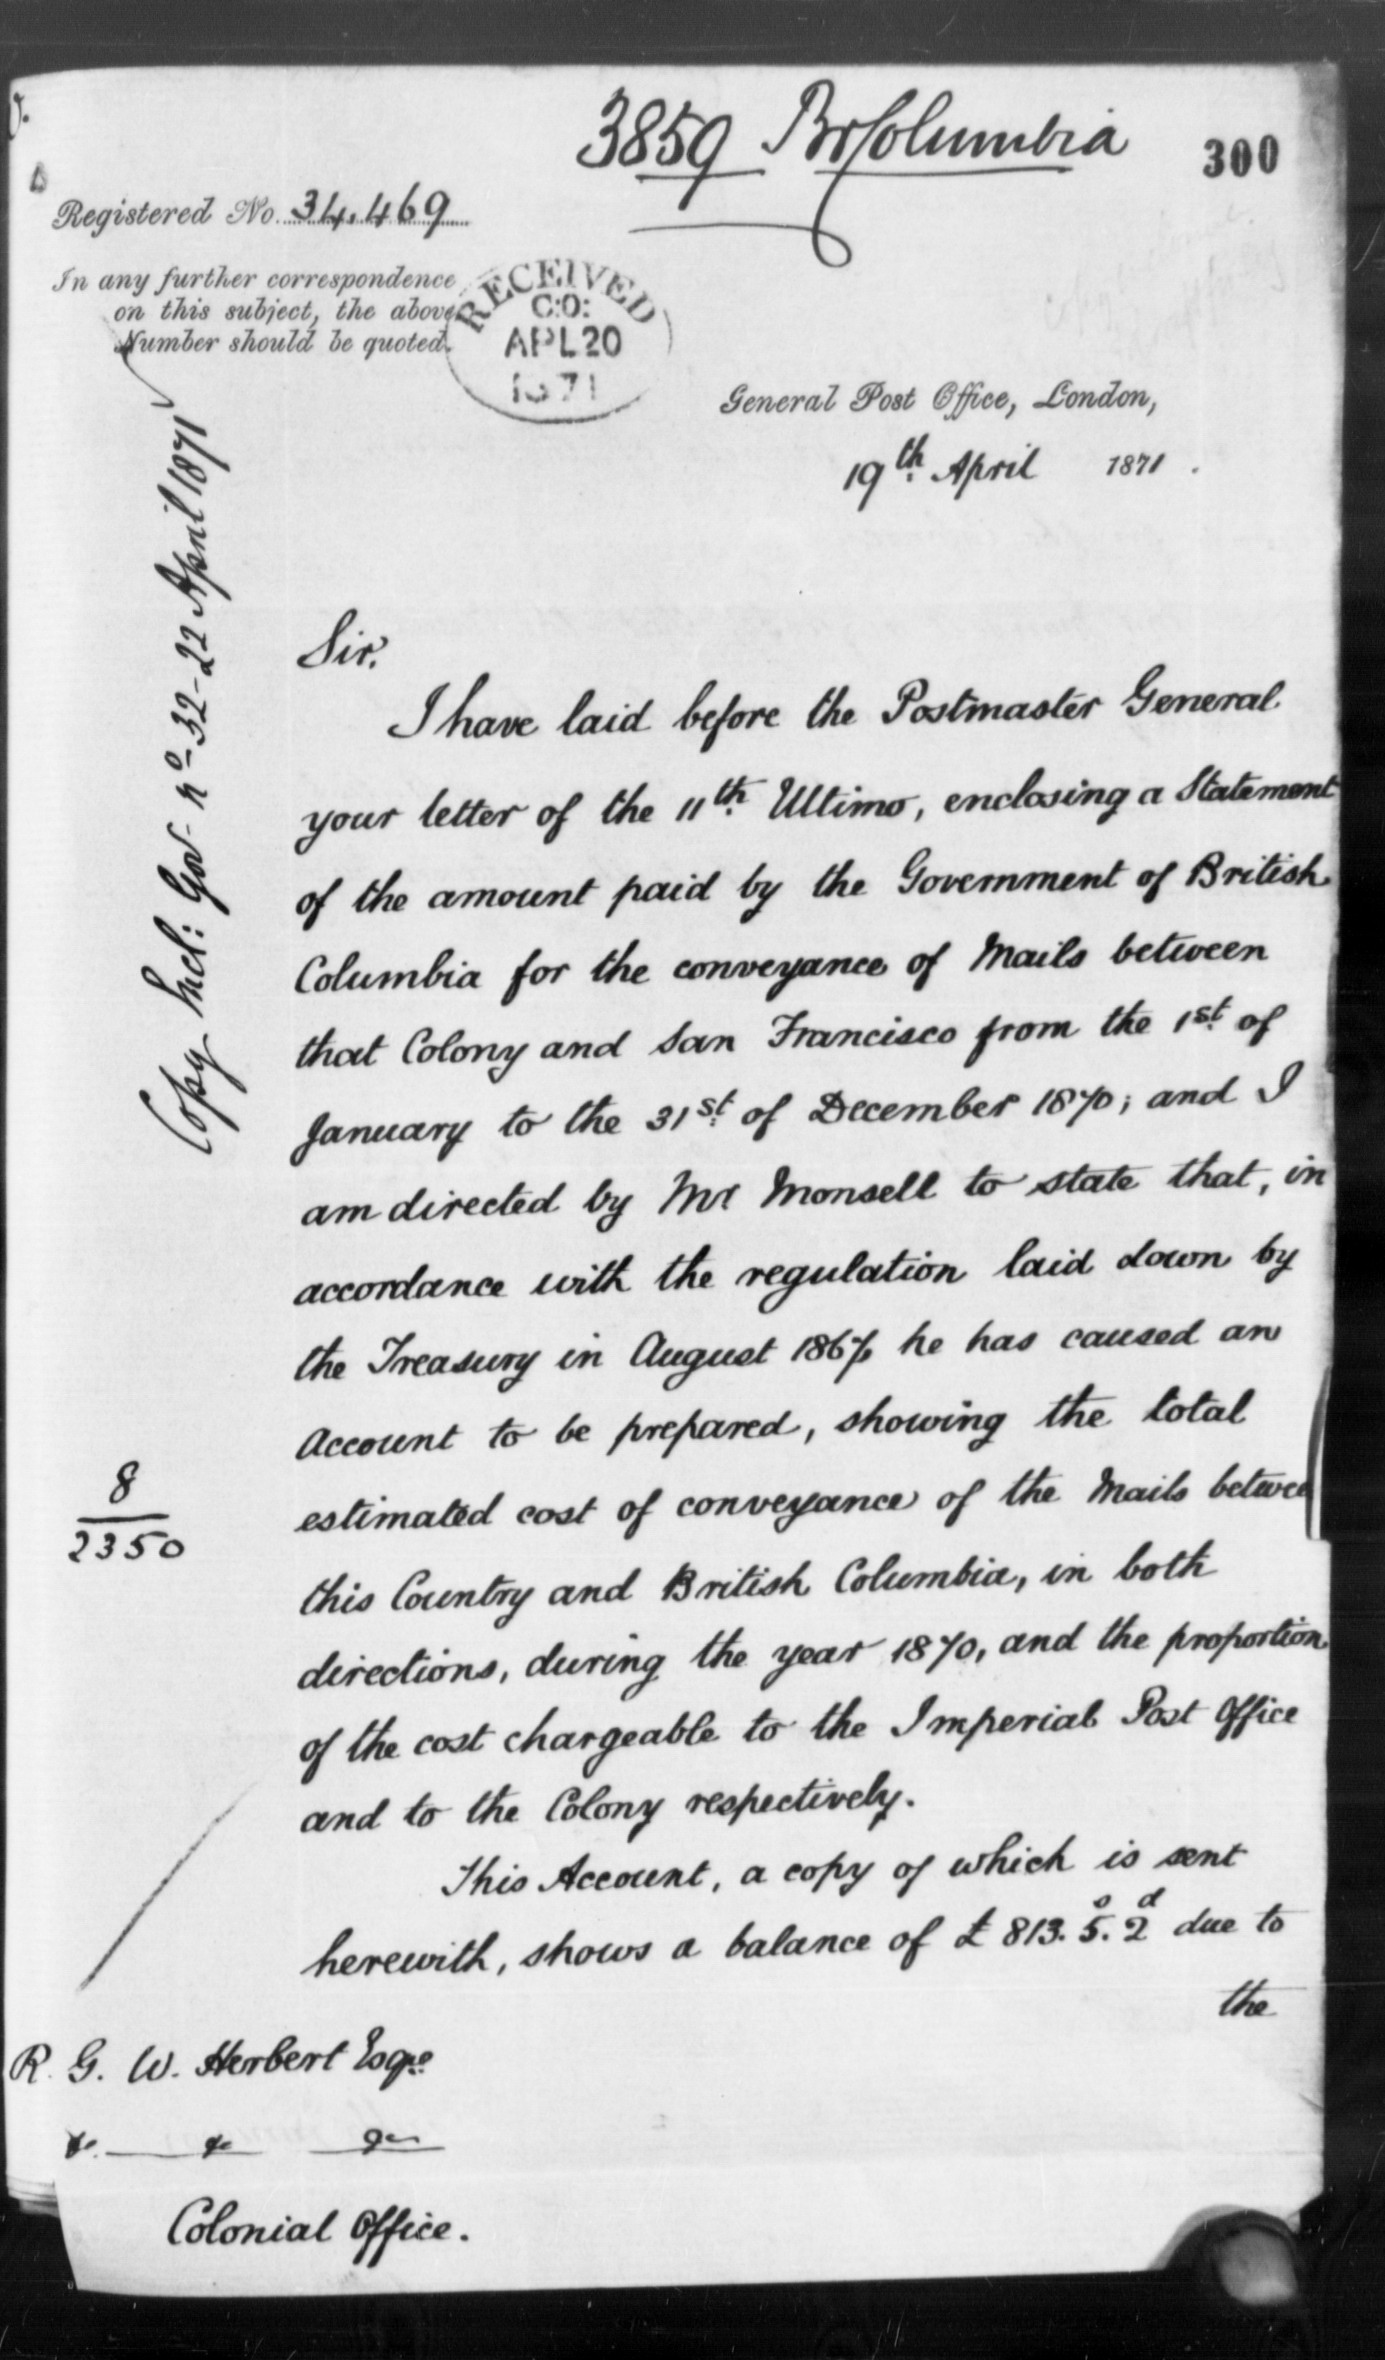 3859 Br Columbia
300
Registered No. 34,469
In any further correspondence
on this subject, the above
Number should be quoted.
RECEIVED
C:O:
APL 20
1871
General Post Office, London,
19th April 1871.
Copy Encl: Gov No 32-22 April 1871
Sir.
I have laid before the Postmaster General
your letter of the 11th Ultimo, enclosing a Statement
of the amount paid by the Government of British
Columbia for the conveyance of Mails between
that Colony and San Francisco from the 1st of
January to the 31st of December 1870; and I
am directed by Mr Monsell to state that, in
accordance with the regulation laid down by
the Treasury in August 1867, he has caused an
Account to be prepared, showing the total
estimated cost of conveyance of the Mails betwee
this Country and British Columbia, in both
directions, during the year 1870, and the proportion
of the cost chargeable to the Imperial Post Office
and to the Colony respectively.
This Account, a copy of which is sent
herewith, shows a balance of £813. 5s. 2d due to
the
8
2350
R. G. W. Herbert Esqre
&c. &c &c
Colonial Office.